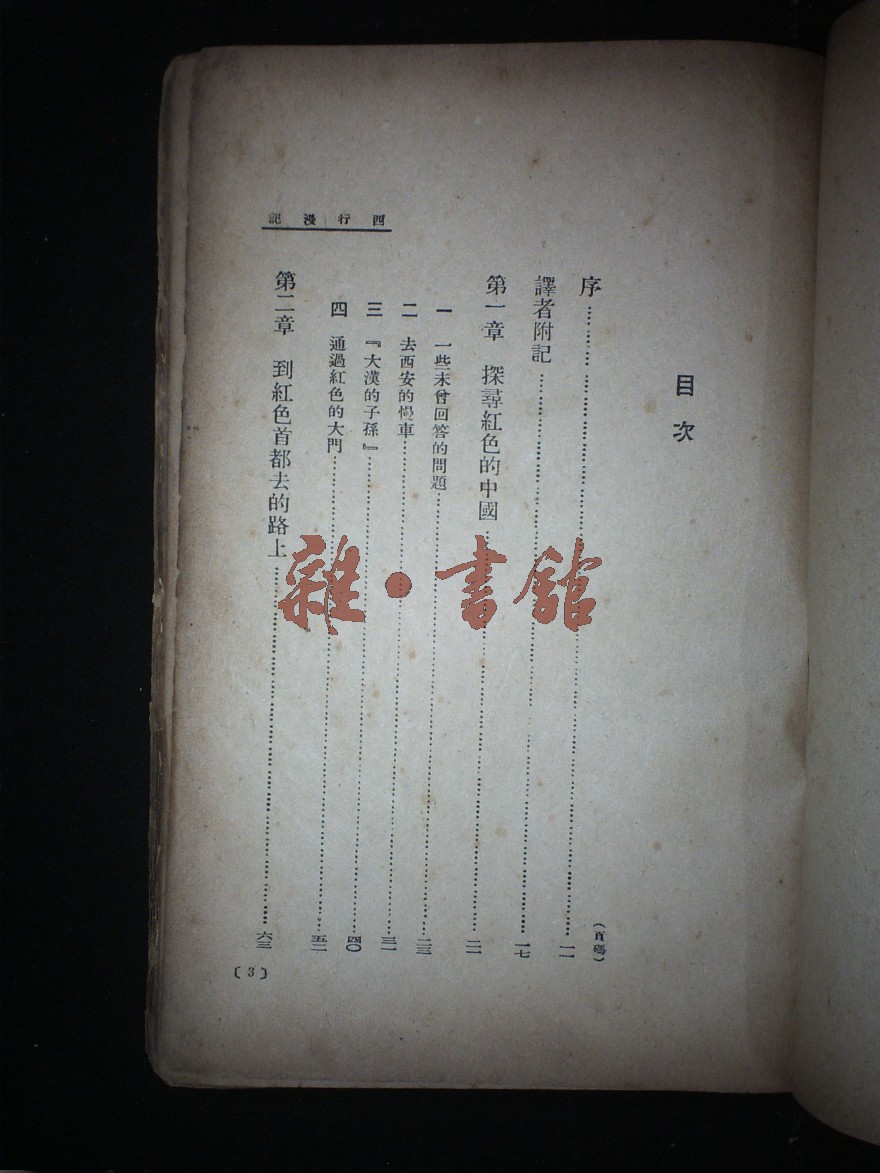 西行漫記
目次
(頁數)
序……一一
譯者附記……一七
第一章 探尋紅色的中國……二一
一 一些未曾回答的問題……二三
二 去西安的慢車……三一
三 『大漢的子孫』……四〇
四 通過紅色的大門……五二
第二章 到紅色首都去的路上……六三
〔3〕
雜·書館